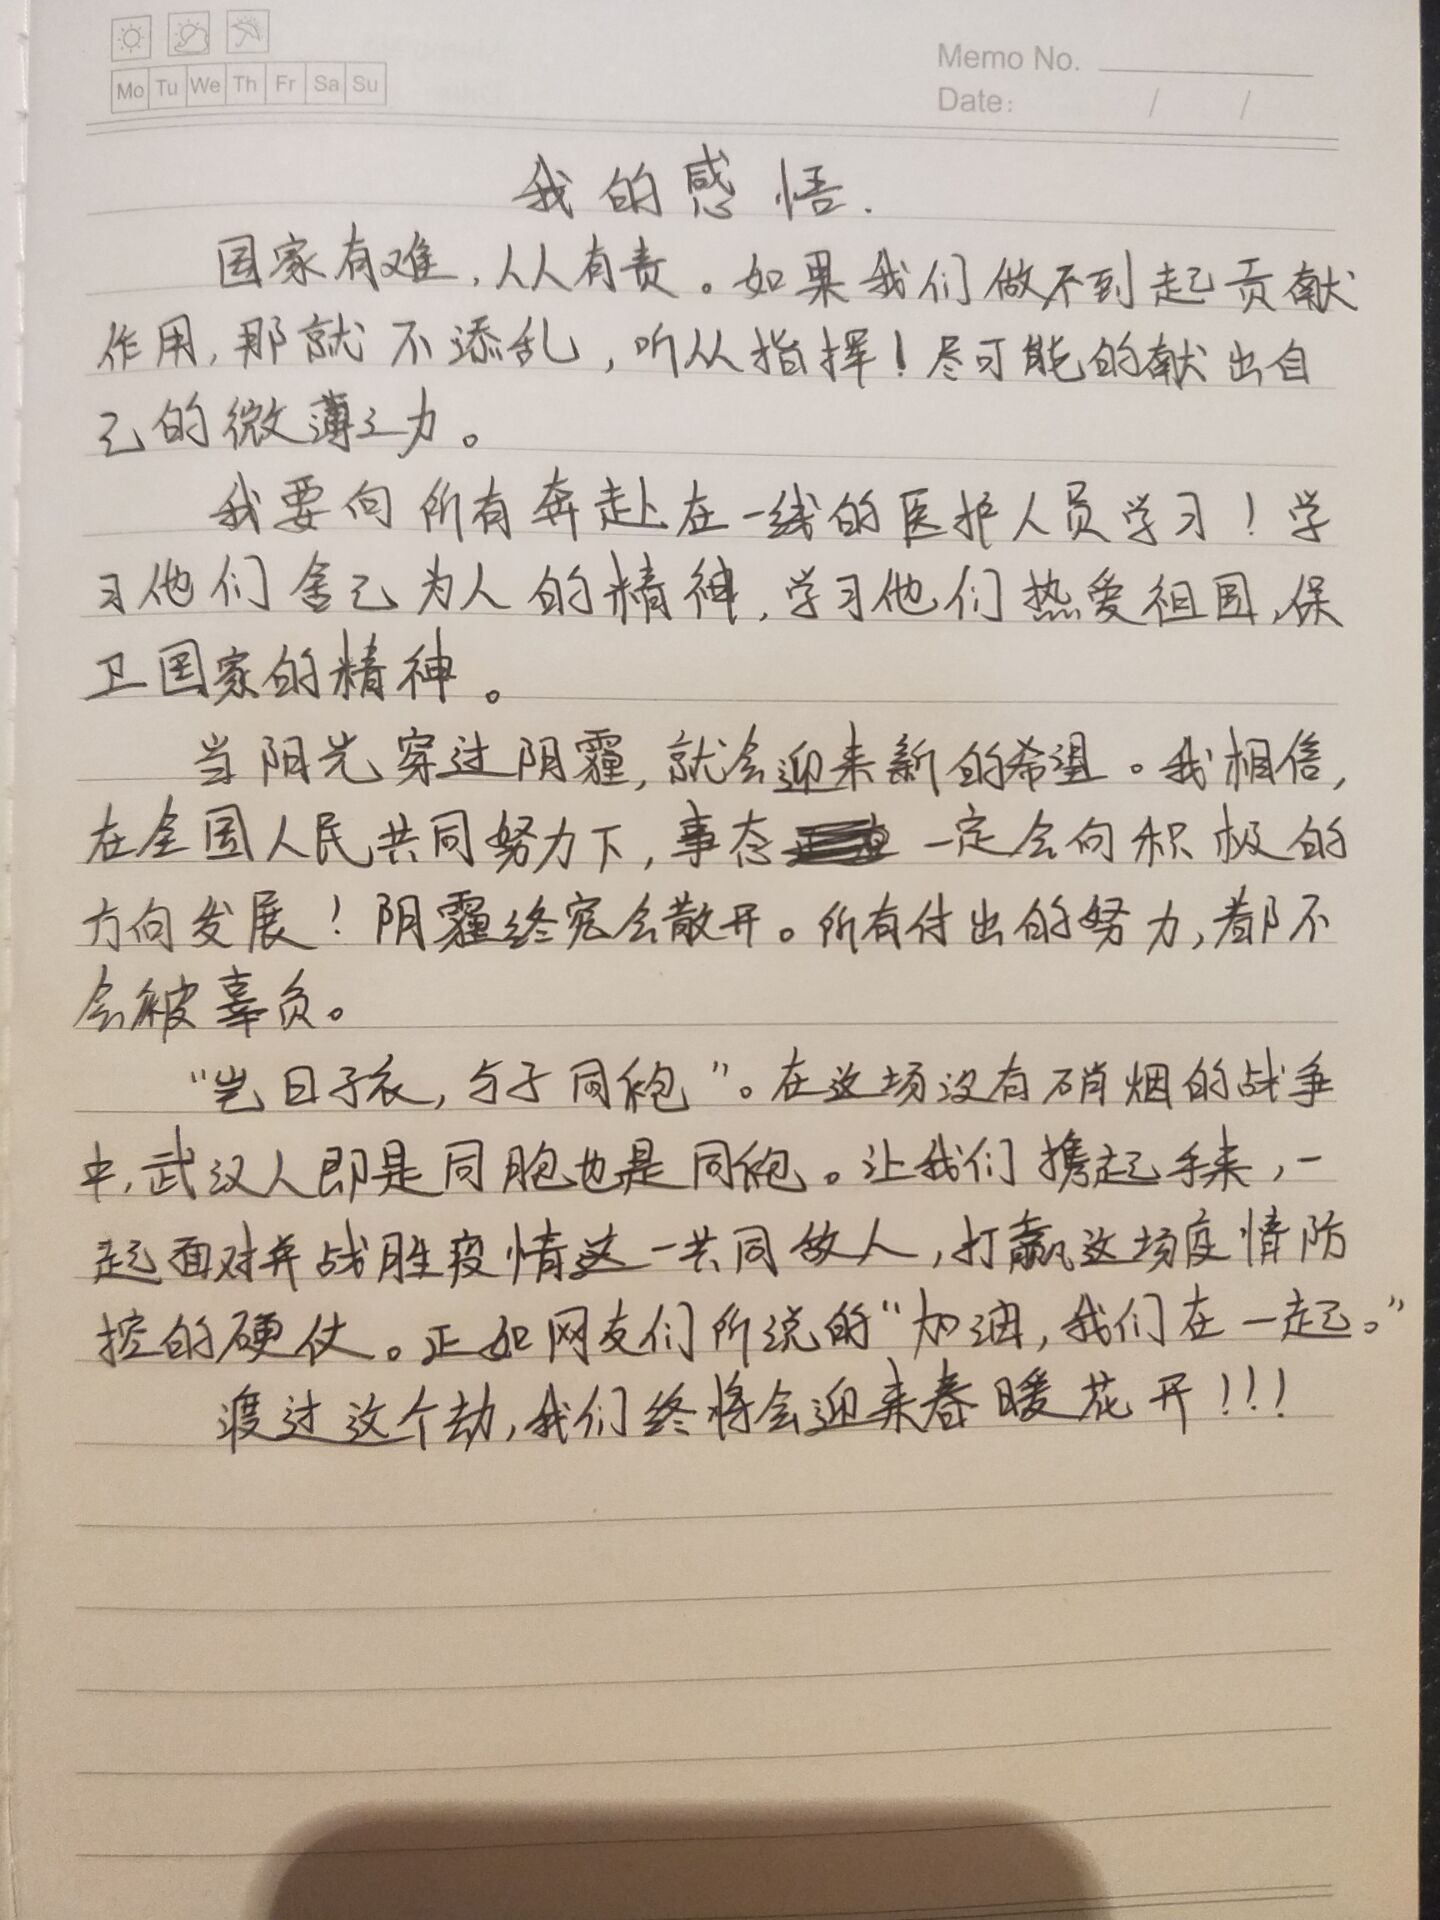 Mo Tu We Th Fr Sa Su
Memo No.
Date: / /
我的感悟.
国家有难,人人有责。如果我们做不到起贡献
作用,那就不添乱,听从指挥!尽可能的献出自
己的微薄之力。
我要向所有奔赴在一线的医护人员学习!学
习他们舍己为人的精神,学习他们热爱祖国,保
卫国家的精神。
当阳光穿过阴霾,就会迎来新的希望。我相信,
在全国人民共同努力下,事态一定会向积极的
方向发展!阴霾终究会散开。所有付出的努力,都不
会被辜负。
“岂曰子衣,与子同袍”。在这场没有硝烟的战争
中,武汉人即是同胞也是同袍。让我们携起手来,一
起面对并战胜疫情这一共同敌人,打赢这场疫情防
控的硬仗。正如网友们所说的“加油,我们在一起。”
渡过这个劫,我们终将会迎来春暖花开!!!